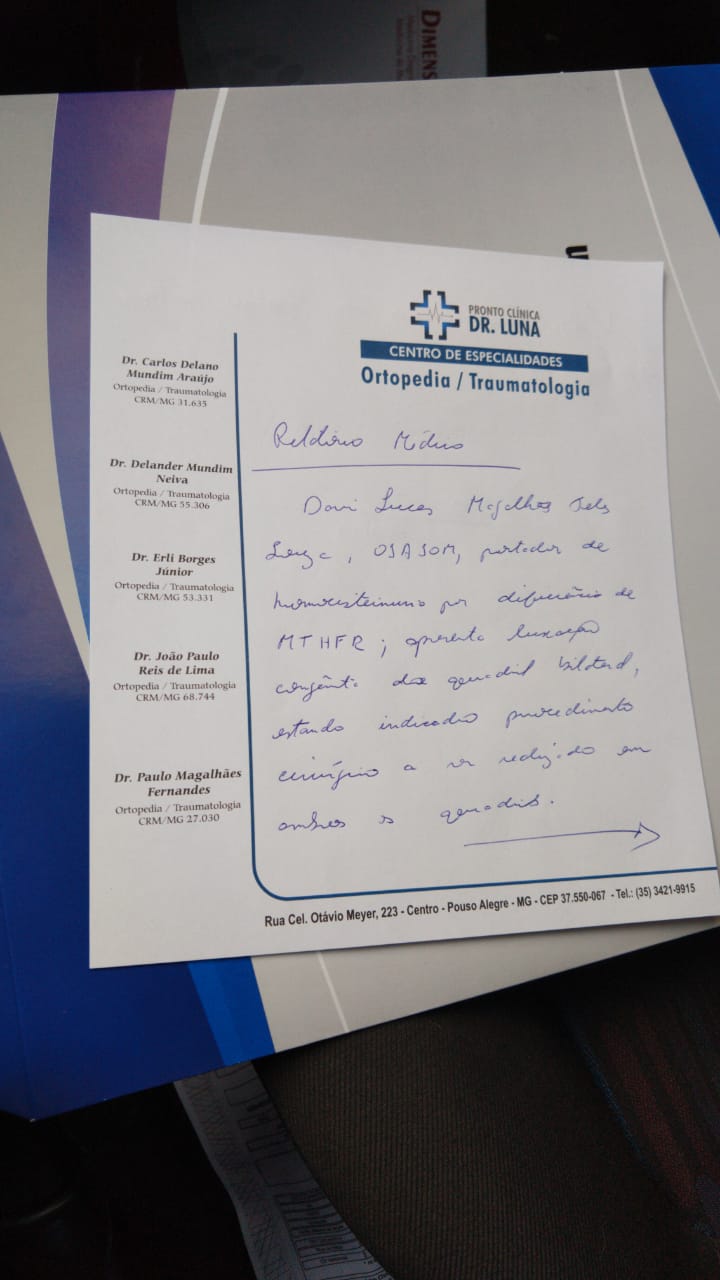 DIMENS
PRONTO CLÍNICA
DR. LUNA
CENTRO DE ESPECIALIDADES
Ortopedia / Traumatologia
Dr. Carlos Delano
Mundim Araújo
Ortopedia / Traumatologia
CRM/MG 31.635
Dr. Delander Mundim
Neiva
Ortopedia / Traumatologia
CRM/MG 55.306
Dr. Erli Borges
Júnior
Ortopedia / Traumatologia
CRM/MG 53.331
Dr. João Paulo
Reis de Lima
Ortopedia / Traumatologia
CRM/MG 68.744
Dr. Paulo Magalhães
Fernandes
Ortopedia / Traumatologia
CRM/MG 27.030
Relatório Médico
Davi Lucas Magalhães
, portador de
por deficiência de
MTHFR; apresenta luxação
congênita quadril bilateral,
estando indicado procedimento
cirúrgico a ser realizado em
ambos os quadris.
Rua Cel. Otávio Meyer, 223 - Centro - Pouso Alegre - MG - CEP 37.550-067 - Tel.: (35) 3421-9915